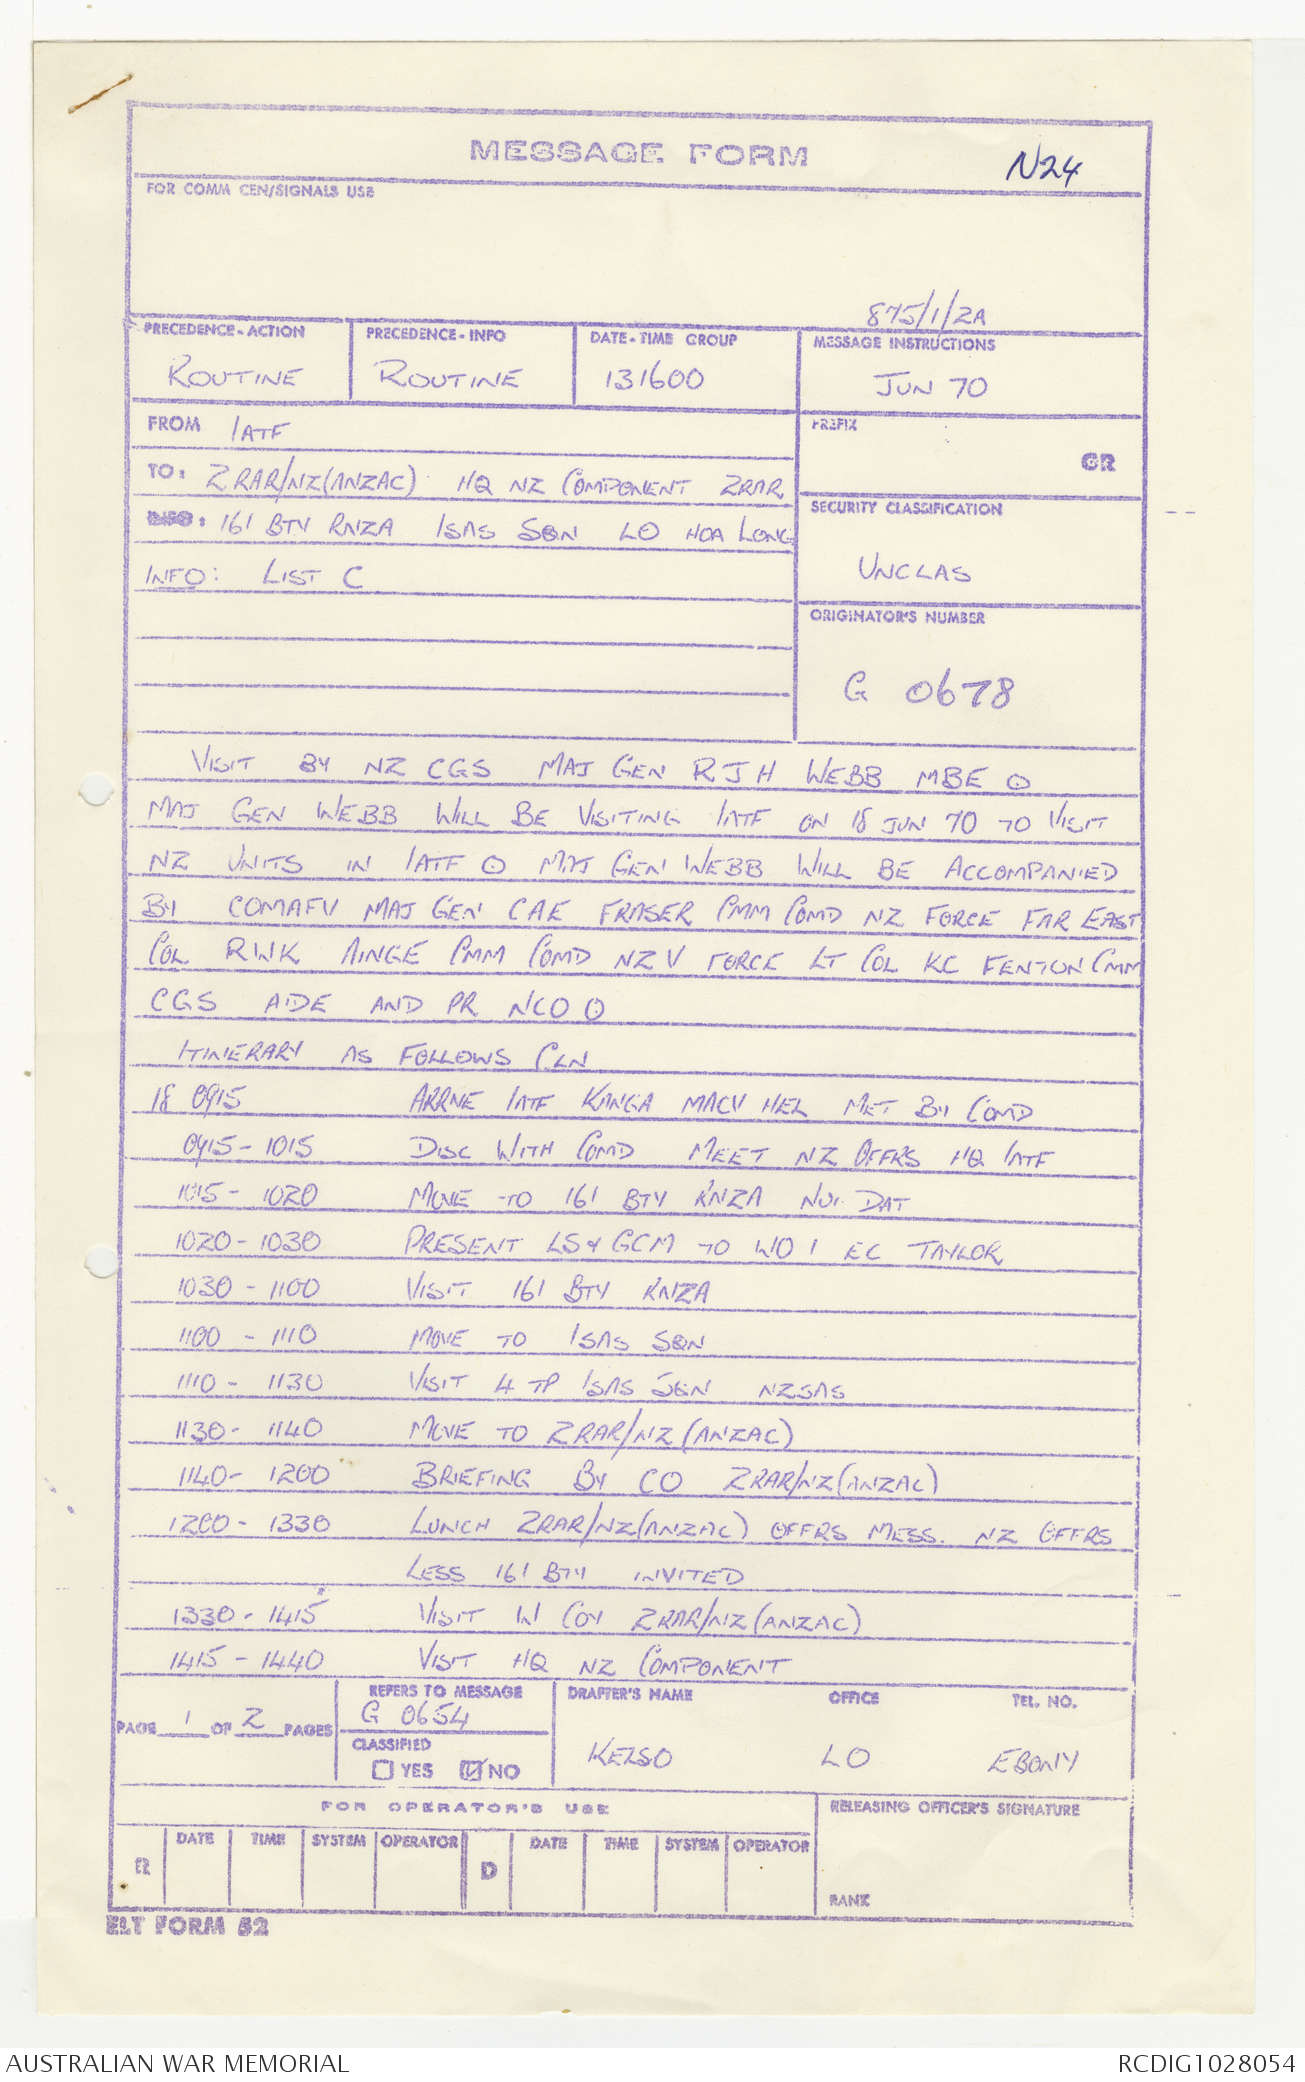 MESSAGE FORM
N24
FOR COMM CEN/SIGNALS USE
875/1/2A
PRECEDENCE - ACTION
ROUTINE
PRECEDENCE - INFO
ROUTINE
DATE - TIME GROUP
131600
MESSAGE INSTRUCTIONS
JUN 70
FROM 1ATF
PREFIX
GR
TO: 2RAR/NZ(ANZAC) HQ NZ COMPONENT 2RAR
161 BTY RNZA 1SAS SQN LO HOA LONG
INFO: LIST C
SECURITY CLASSIFICATION
UNCLAS
ORIGINATOR'S NUMBER
G 0678
VISIT BY NZ CGS MAJ GEN R J H WEBB MBE O
MAJ GEN WEBB WILL BE VISITING 1ATF ON 18 JUN 70 TO VISIT
NZ UNITS IN 1ATF O MAJ GEN WEBB WILL BE ACCOMPANIED
BY COMAFV MAJ GEN CAE FRASER CMM COMD NZ FORCE FAR EAST
COL RWK AINGE CMM COMD NZ V FORCE LT COL KC FENTON CMM
CGS AIDE AND PR NCO O
ITINERARY AS FOLLOWS CLN
18 0915 ARRIVE 1ATF KANGA MACV HEL MET BY COMD
0915 - 1015 DISC WITH COMD MEET NZ OFFRS HQ 1ATF
1015 - 1020 MOVE TO 161 BTY RNZA NUI DAT
1020 - 1030 PRESENT LS & GCM TO WO 1 EC TAYLOR
1030 - 1100 VISIT 161 BTY RNZA
1100 - 1110 MOVE TO 1SAS SQN
1110 - 1130 VISIT 4 TP 1SAS SQN NZSAS
1130 - 1140 MOVE TO 2RAR/NZ (ANZAC)
1140 - 1200 BRIEFING BY CO 2RAR/NZ(ANZAC)
1200 - 1330 LUNCH 2RAR/NZ(ANZAC) OFFRS MESS. NZ OFFRS
LESS 161 BTY INVITED
1330 - 1415 VISIT W COY 2RAR/NZ(ANZAC)
1415 - 1440 VISIT HQ NZ COMPONENT
PAGE 1 OF 2 PAGES
REFERS TO MESSAGE
G 0654
CLASSIFIED
YES NO
DRAFTER'S NAME
KELSO
OFFICE
LO
TEL. NO.
EBONY
FOR OPERATOR'S USE
R DATE TIME SYSTEM OPERATOR D DATE TIME SYSTEM OPERATOR
RELEASING OFFICER'S SIGNATURE
RANK
ELT FORM 52
AUSTRALIAN WAR MEMORIAL
RCDIG1028054